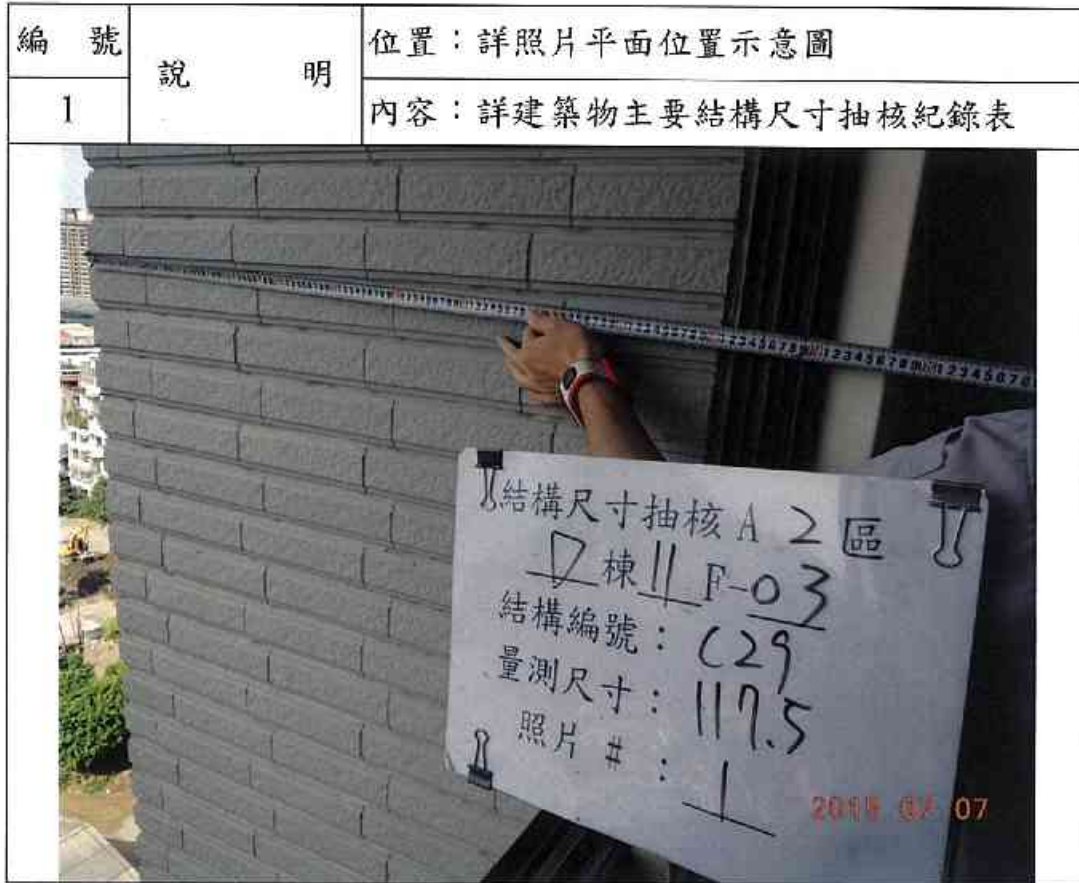 編 號
1
說 明
位置：詳照片平面位置示意圖
內容：詳建築物主要結構尺寸抽核紀錄表
結構尺寸抽核 A 2 區
D 棟 11 F-03
結構編號：C29
量測尺寸：117.5
照片 #：1